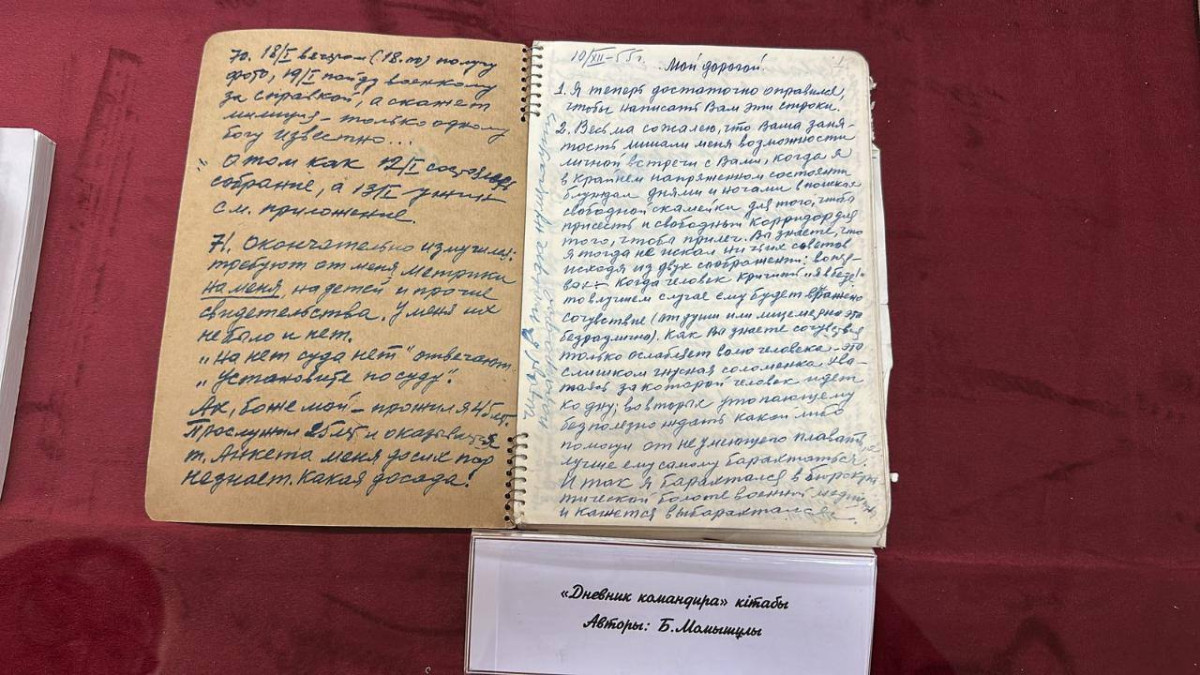 70. 18/I вечером (18.00) получу
фото, 19/I пойду военкому
за справкой, а скажет
милиция - только одному
богу известно...
О том как 12/I состоялось
собрание, а 13/I
см. приложение.
71. Окончательно измучили:
требуют от меня метрики
на меня, на детей и прочие
свидетельства. У меня их
не было и нет.
"На нет суда нет" отвечают
"Установите по суду".
Ах, боже мой - прожил я 45 лет,
Прослужил 25 лет и оказывается
т. Анкета меня до сих пор
не знает. Какая досада!
10/XII-55г.
1
Мой дорогой.
1. Я теперь достаточно оправился,
чтобы написать Вам эти строки.
2. Весьма сожалею, что Ваша заня-
тость лишали меня возможности
личной встречи с Вами, когда я
в крайнем напряженном состоянии
блуждал днями и ночами в поисках
свободной скамейки для того, чтобы
присесть и свободный корридор для
того, чтобы прилеч. Вы знаете, что
я тогда не искал ни чьих советов
исходя из двух соображений: во пер-
вых - когда человек кричит "я в беде!"
то в лучшем случае ему будет выражено
сочувствие (от души или лицемерно это
безразлично). Как Вы знаете сочувствия
только ослабляет волю человека - это
слишком гнусная соломинка хва-
таясь за которой человек идет
ко дну; во вторых утопающему
бесполезно ждать какой либо
помощи от неумеющего плавать
лучше ему самому барахтаться.
И так я барахтался в бюрокра-
тической болоте военной
и кажется выбарахтался.
«Дневник командира» кітабы
Авторы: Б.Момышұлы